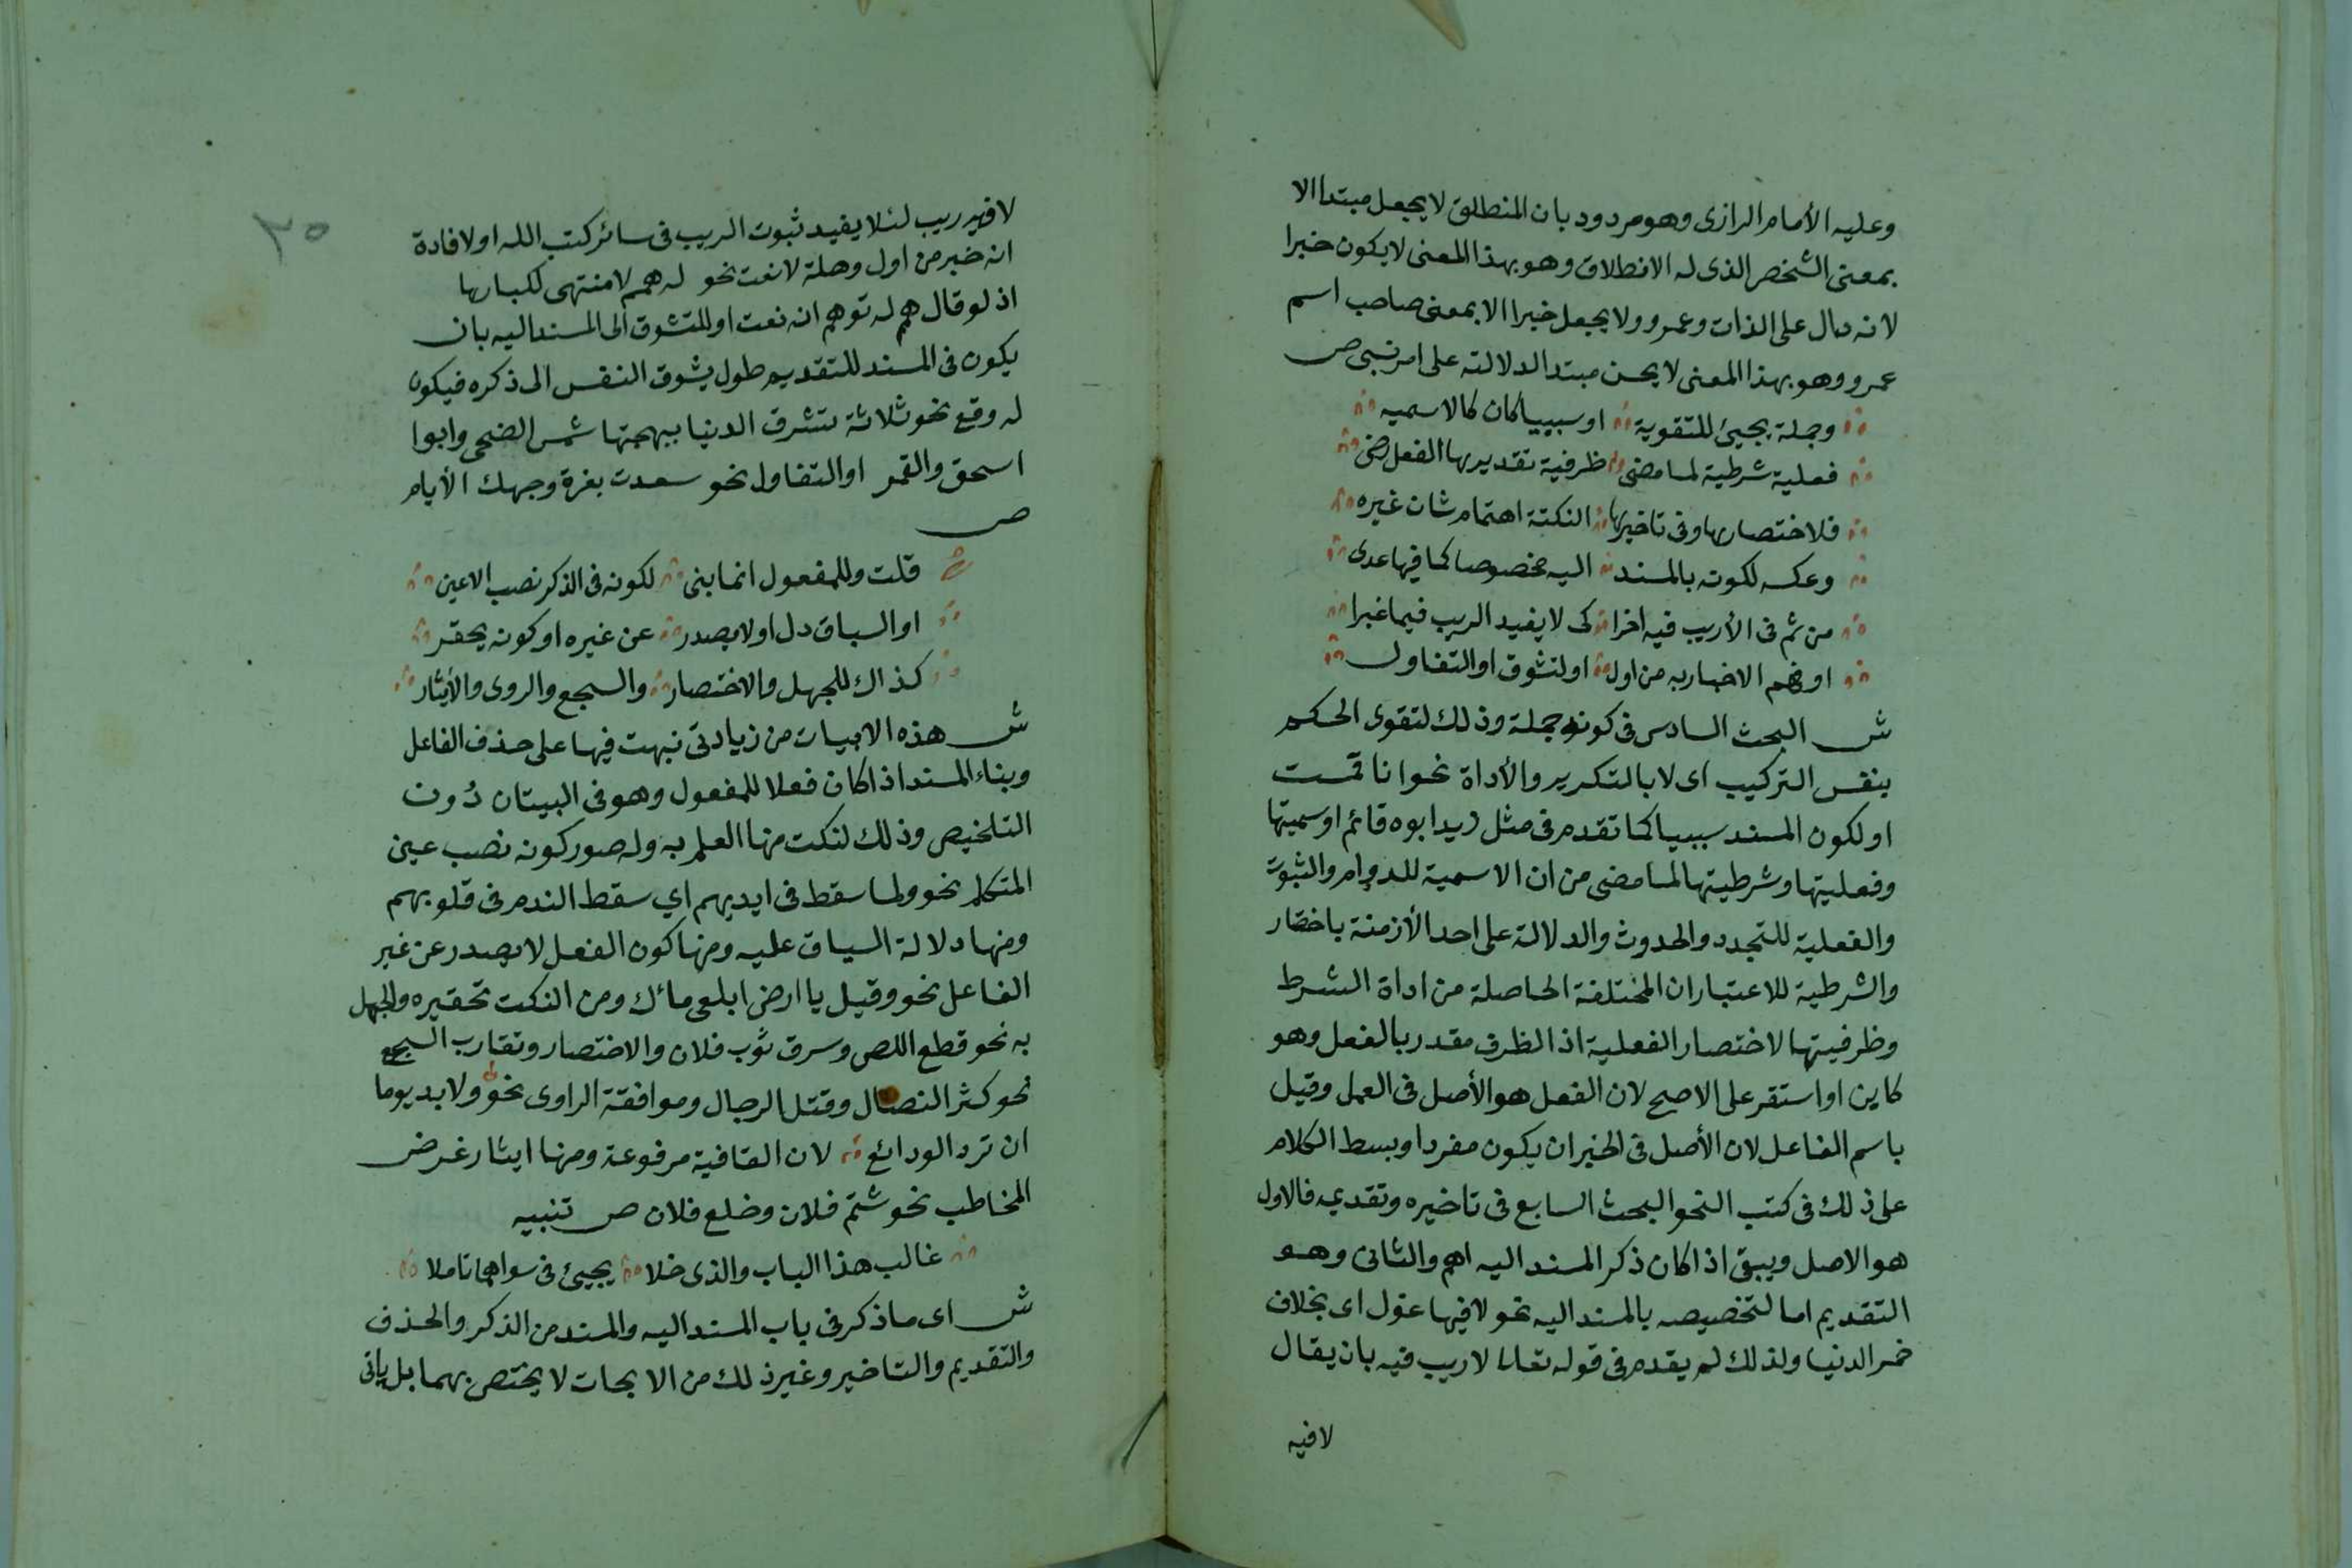 وعليه الأمام الرازى وهو مردود بان المنطلق لا يجعل مبتدا الا
بمعنى الشخص الذى له الانطلاق وهو بهذا المعنى لا يكون خبرا
لانه دال على الذات وعمرو ولا يجعل خبرا الا بمعنى صاحب اسم
عمرو وهو بهذا المعنى لا يحسن مبتدا لدلالته على امر نسبى ص
وجملة يجيئ للتقوية او سببيا كان كالاسميه
فعلية شرطية لما مضى ظرفية تقديرها الفعل رضى
فلاختصارها وفى تاخيرها النكتة اهتمام شان غيره
وعكسه لكونه بالمسند اليه مخصوصا كما فيها عدى
من ثم فى الأريب فيه اخرا كى لا يفيد الريب فيما غبرا
او فهم الاخبار به من اول او لتشوق او التفاول
ش البحث السادس فى كونه جملة وذلك لتقوى الحكم
بنفس التركيب اى لا بالتكرير والأداة نحو انا قمت
او لكون المسند سببيا كما تقدم فى مثل زيد ابوه قائم او سميتها
وفعليتها وشرطيتها لما مضى من ان الاسمية للدوام والثبوت
والفعلية للتجدد والحدوث والدلالة على احد الأزمنة باختصار
والشرطية للاعتباران المختلفة الحاصلة من اداة الشرط
وظرفيتها لاختصار الفعلية اذ الظرف مقدر بالفعل وهو
كاين او استقر على الاصح لان الفعل هو الأصل فى العمل وقيل
باسم الفاعل لان الأصل فى الخبر ان يكون مفردا وبسط الكلام
على ذلك فى كتب النحو البحث السابع فى تاخيره وتقديمه فالاول
هو الاصل ويبق اذا كان ذكر المسند اليه اهم والثانى وهو
التقديم اما لتخصيصه بالمسند اليه نحو لا فيها غول اى بخلاف
خمر الدنيا ولذلك لم يقدم فى قوله تعالى لا ريب فيه بان يقال
لا فيه
٣٥
لا فيه ريب لئلا يفيد ثبوت الريب فى سائر كتب الله او لافادة
انه خبر من اول وهلة لا نعت نحو له همم لا منتهى لكبارها
اذ لو قال همم له توهم انه نعت او للتشوق الى المسند اليه بان
يكون فى المسند للتقديم طول يشوق النفس الى ذكره فيكون
له وقع نحو ثلاثة تشرق الدنيا ببهجتها شمس الضحى وابوا
اسحق والقمر او التفاول نحو سعدت بغرة وجهك الأيام
ص
قلت وللمفعول انما بنى لكونه فى الذكر نصب الاعين
او السياق دل او لا يصدر عن غيره او كونه يحقر
كذاك للجهل والاختصار والسجع والروى والأيثار
ش هذه الابيات من زيادتى نبهت فيها على حذف الفاعل
وبناء المسند اذا كان فعلا للمفعول وهو فى البيتان دُون
التلخيص وذلك لنكت منها العلم به وله صور كونه نصب عين
المتكلم نحو ولما سقط فى ايديهم اي سقط الندم فى قلوبهم
ومنها دلالة السياق عليه ومنها كون الفعل لا يصدر عن غير
الفاعل نحو وقيل يا ارض ابلعى مائك ومن النكت تحقيره والجهل
به نحو قطع اللص وسرق ثوب فلان والاختصار وتقارب السجع
نحو كثر النصال وقتل الرجال وموافقة الراوى نحو ولابد يوما
ان ترد الودائع لان القافية مرفوعة ومنها ايثار غرض
المخاطب نحو شتم فلان وخلع فلان ص تنبيه
غالب هذا الباب والذى خلا يجيئ فى سواهما تاملا
ش اى ما ذكر فى باب المسند اليه والمسند من الذكر والحذف
والتقديم والتاخير وغير ذلك من الابحات لا يختص بهما بل ياتى